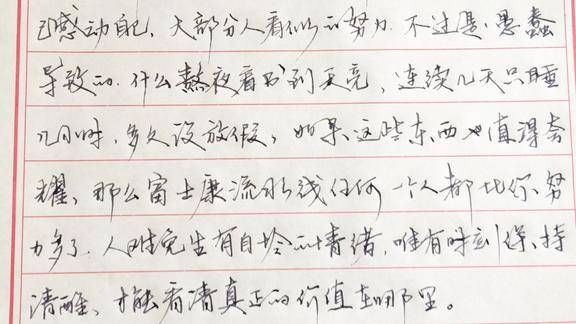 己感动自己，大部分人看似的努力，不过是愚蠢
导致的。什么熬夜看书到天亮，连续几天只睡
几小时，多久没放假，如果这些东西也值得夸
耀，那么富士康流水线任何一个人都比你努
力多了。人难免生有自怜的情绪，唯有时刻保持
清醒，才能看清真正的价值在哪里。